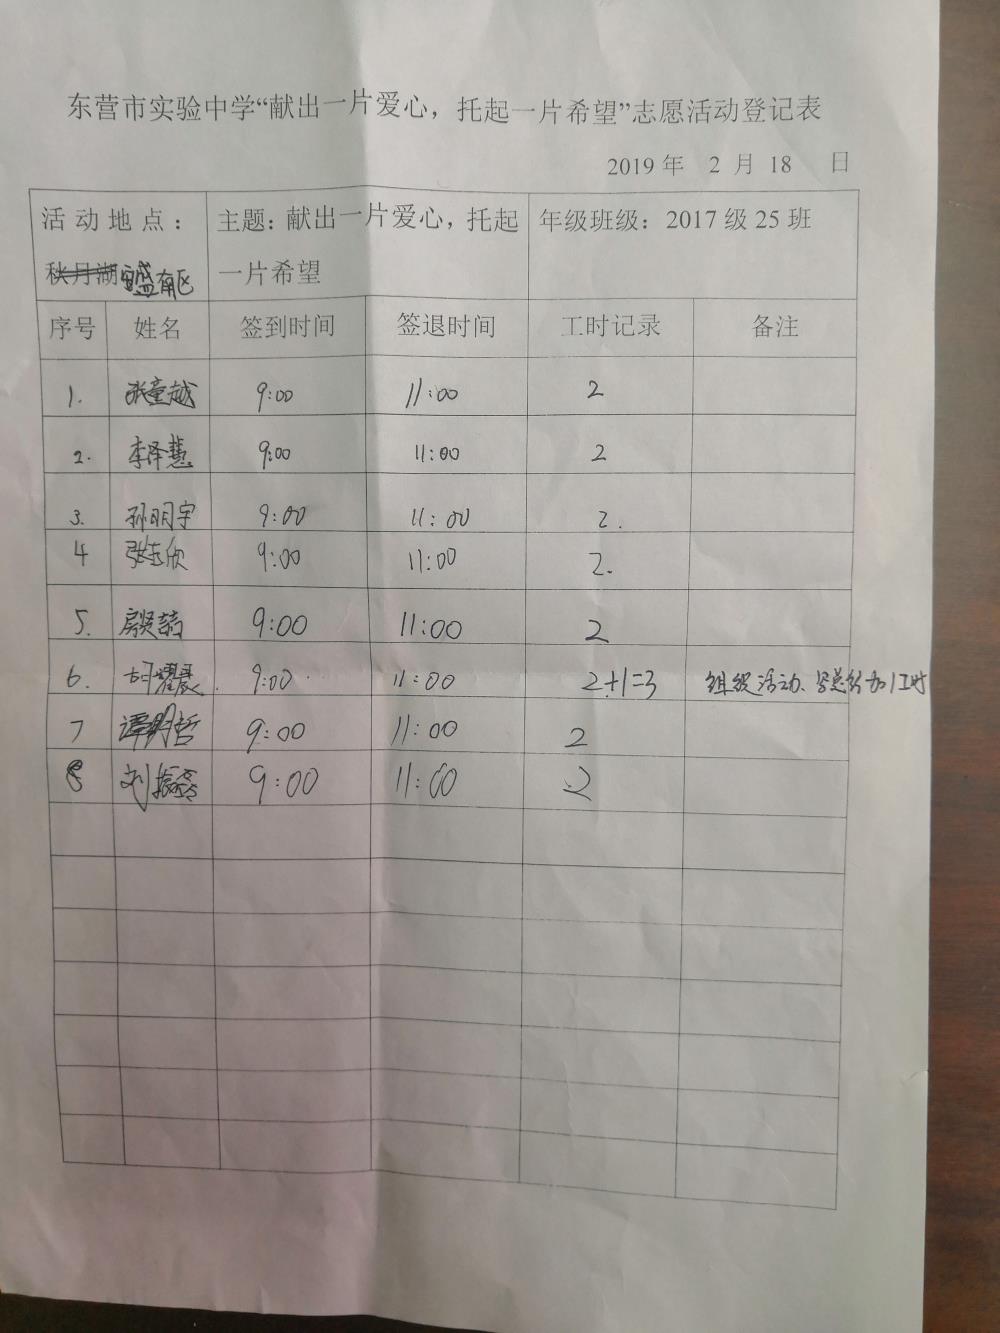 东营市实验中学“献出一片爱心，托起一片希望”志愿活动登记表
2019 年 2 月 18 日
活动地点： 主题：献出一片爱心，托起 年级班级：2017 级 25 班
秋月湖 盛南区 一片希望
序号 姓名 签到时间 签退时间 工时记录 备注
1. 张童越 9:00 11:00 2
2. 李泽慧 9:00 11:00 2
3. 孙明宇 9:00 11:00 2.
4 张志欣 9:00 11:00 2.
5. 房贤 9:00 11:00 2
6. 胡耀晨. 9:00 11:00 2+1=3 组织活动、写总结加1工时
7 谭明哲 9:00 11:00 2
8 刘振 9:00 11:00 2